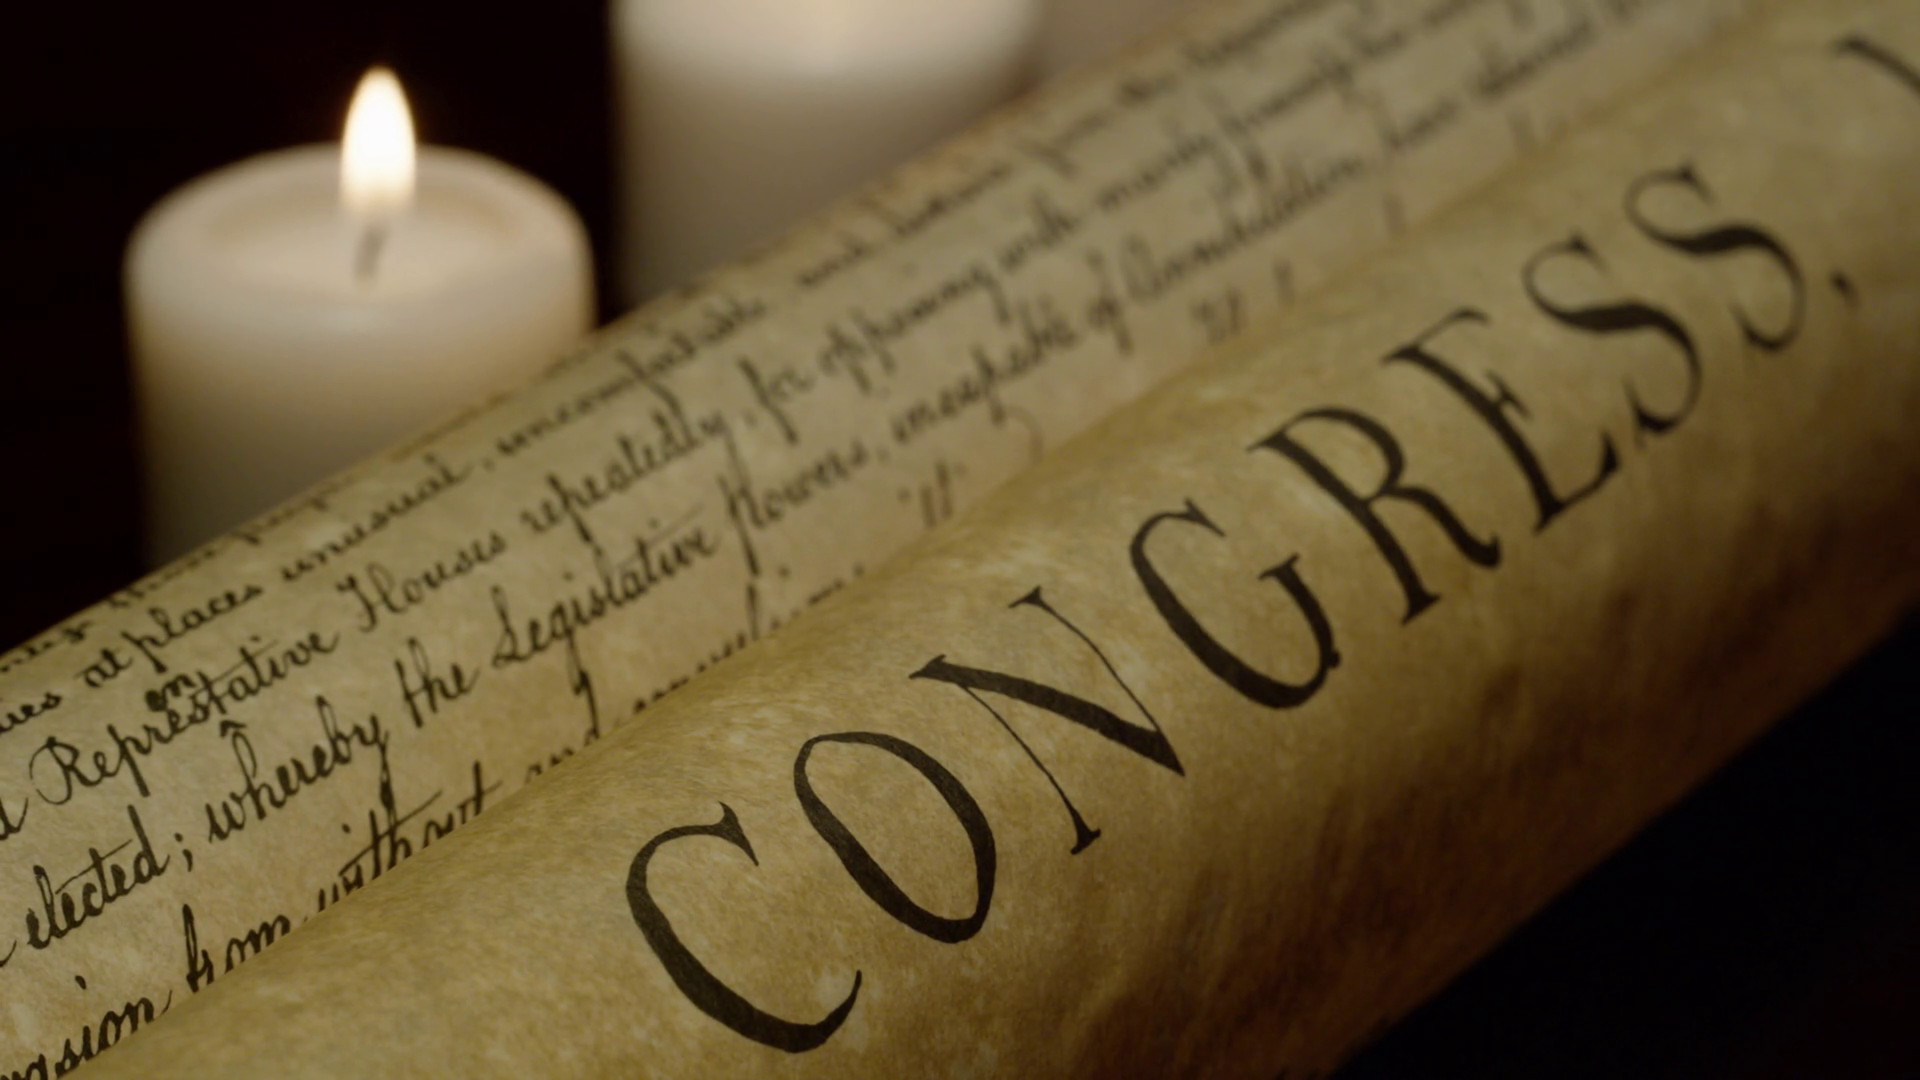 at places unusual, uncomfortable, and distant from the
en
Represtative Houses repeatedly, for opposing with manly firmness
elected; whereby the Legislative Powers, incapable of Annihilation, have returned
vasion from without and
CONGRESS,